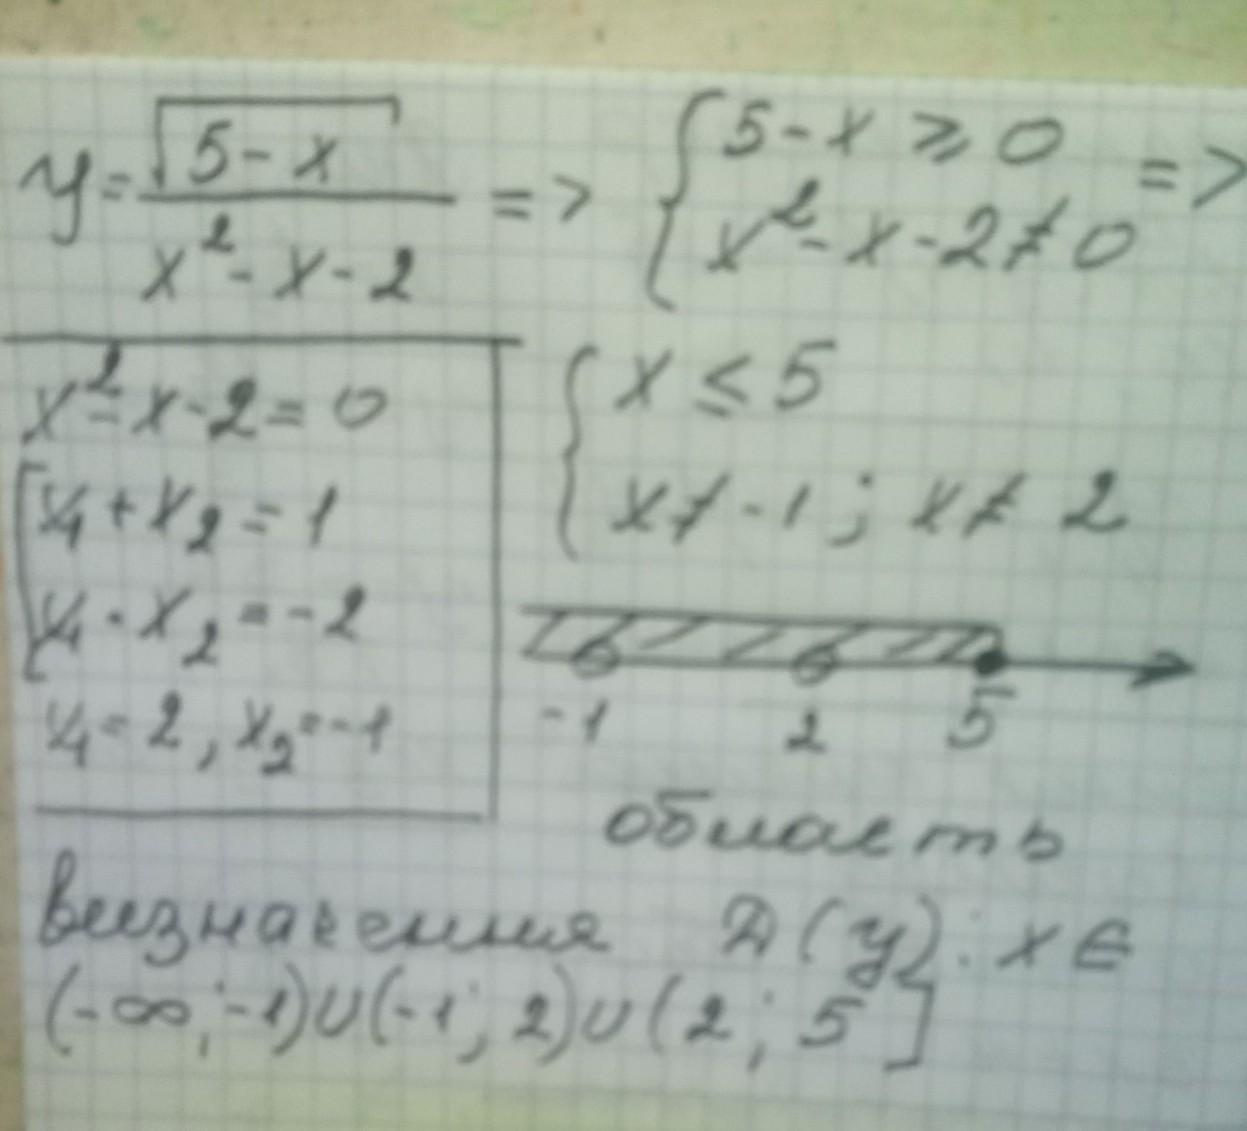 y = √(5 - x) / (x² - x - 2) => { 5 - x ⩾ 0 ; x² - x - 2 ≠ 0 =>
x² - x - 2 = 0
[ x₁ + x₂ = 1
x₁ · x₂ = -2
x₁ = 2, x₂ = -1
{ x ≤ 5
x ≠ -1; x ≠ 2
-1 2 5
область
визначення D(y): x ∈
(-∞; -1)∪(-1; 2)∪(2; 5]